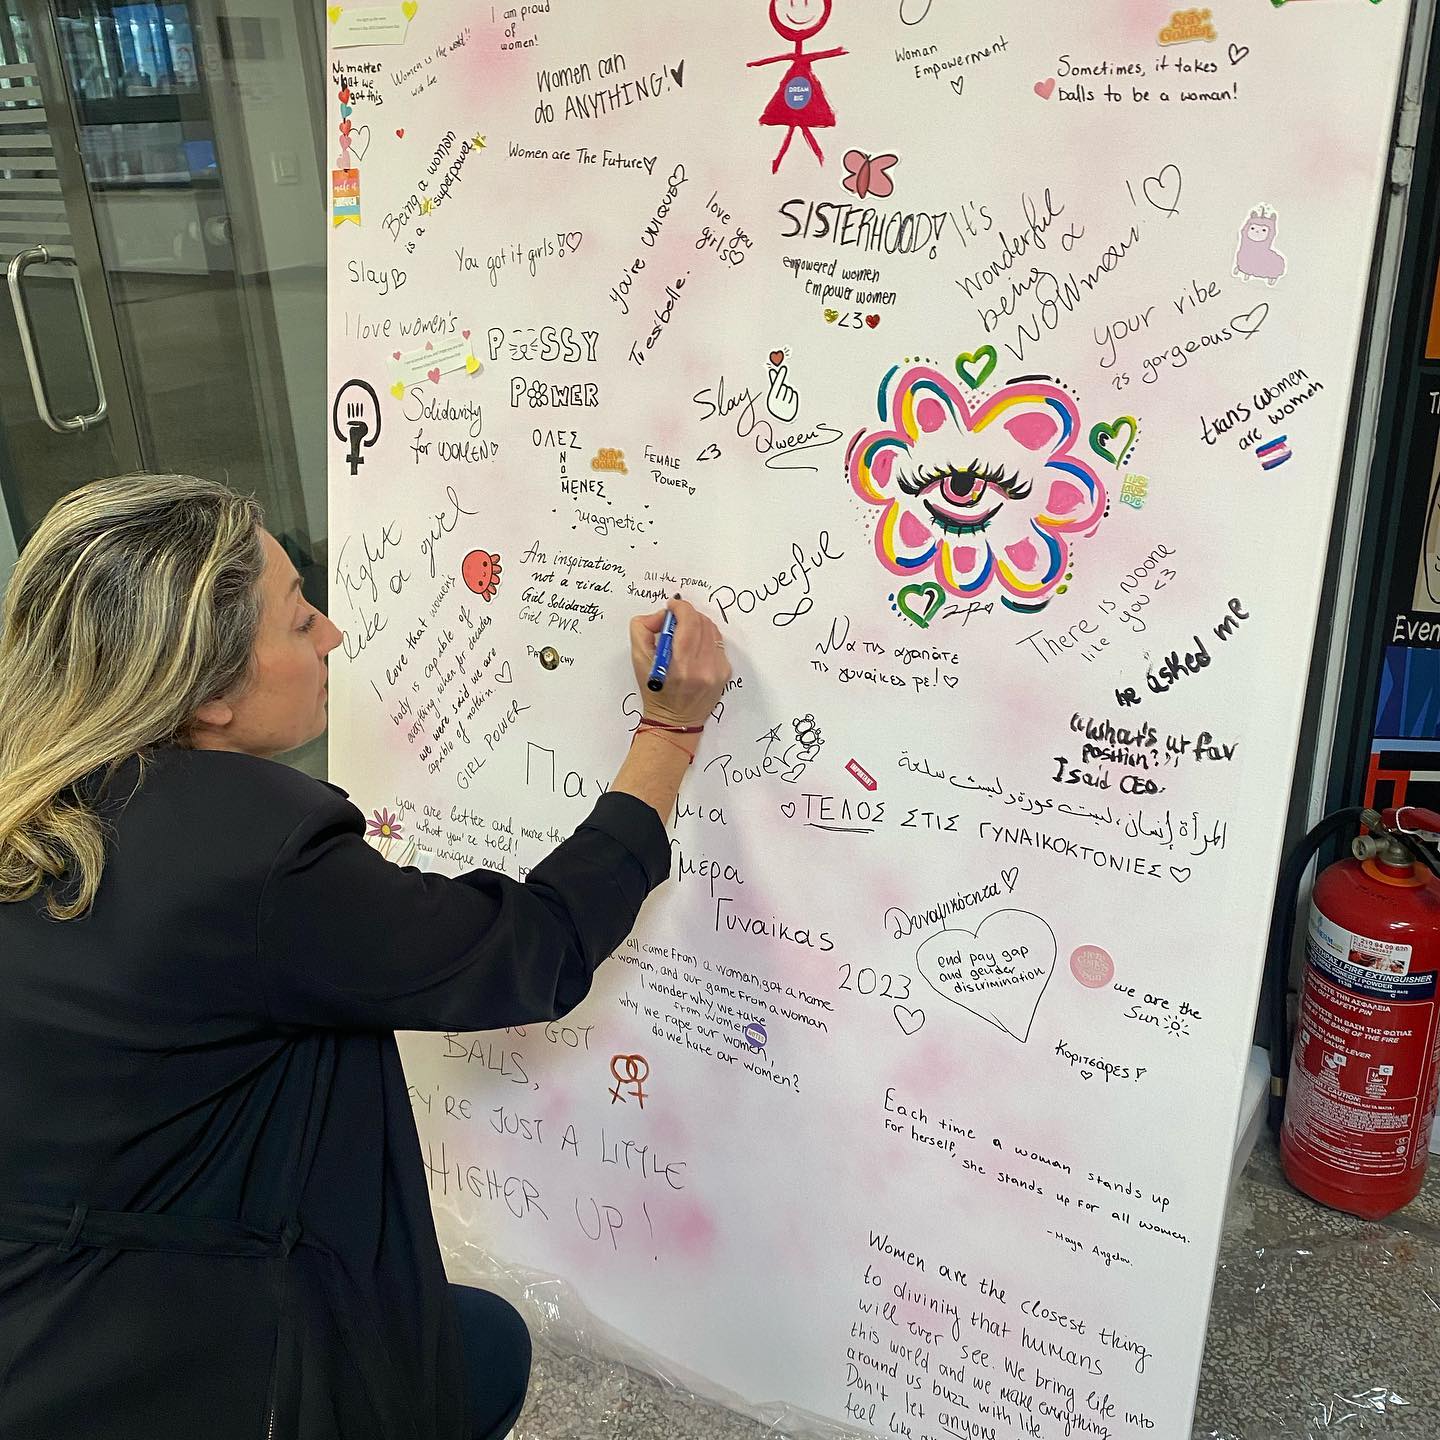 I am proud
of
women!
No matter
what we
got this
Women is the world!!
Women can
do ANYTHING!
DREAM
BIG
Woman
Empowerment
Stay
Golden
Sometimes, it takes
balls to be a woman!
make it
Being a woman
is a superpower
Women are The Future
You're UNIQUE
love you
girls!
SISTERHOOD!
empowered women
empower women
<3
It's
wonderful
being a
woman!
Slay
You got it girls!
Tu es belle.
your vibe
is gorgeous
I love women's
P SSY
POWER
Solidarity
for WOMEN
Slay
Qweens
<3
trans women
are women
ΟΛΕΣ
ΕΝΩΜΕΝΕΣ
Stay
Golden
FEMALE
POWER
magnetic
LIVE
LAUGH
LOVE
Fight
like a girl
An inspiration,
not a rival.
Girl Solidarity,
Girl PWR.
all the power,
strength
Powerful
There is noone
like you <3
PAT CHY
I love that women's
body is capable of
everything, when for decades
we were said we are
capable of nothin.
GIRL POWER
Να τις αγαπάτε
τις γυναίκες ρε!
He asked me
"What's ur fav
position?"
I said CEO.
Power
IMPORTANT
المرأة إنسان، ليست عورة وليست سلعة
ΤΕΛΟΣ ΣΤΙΣ ΓΥΝΑΙΚΟΚΤΟΝΙΕΣ
you are better and more than
what you're told!
stay unique and
Παγ μια
Ημέρα
Γυναίκας
2023
Δυναμικότητα
end pay gap
and gender
discrimination
we are the
Sun
Κοριτσάρες!
all came from a woman, got a name
a woman, and our game from a woman
I wonder why we take
from women
why we rape our women,
do we hate our women?
GOT
BALLS,
EY'RE JUST A LITTLE
HIGHER UP!
Each time a woman stands up
For herself, she stands up for all women.
-Maya Angelou.
Women are the closest thing
to divinity that humans
will ever see. We bring life into
this world and we make everything
around us buzz with life.
Don't let anyone
feel like
Even
ΠΥΡΟΣΒΕΣΤΗΡΑΣ / FIRE EXTINGUISHER